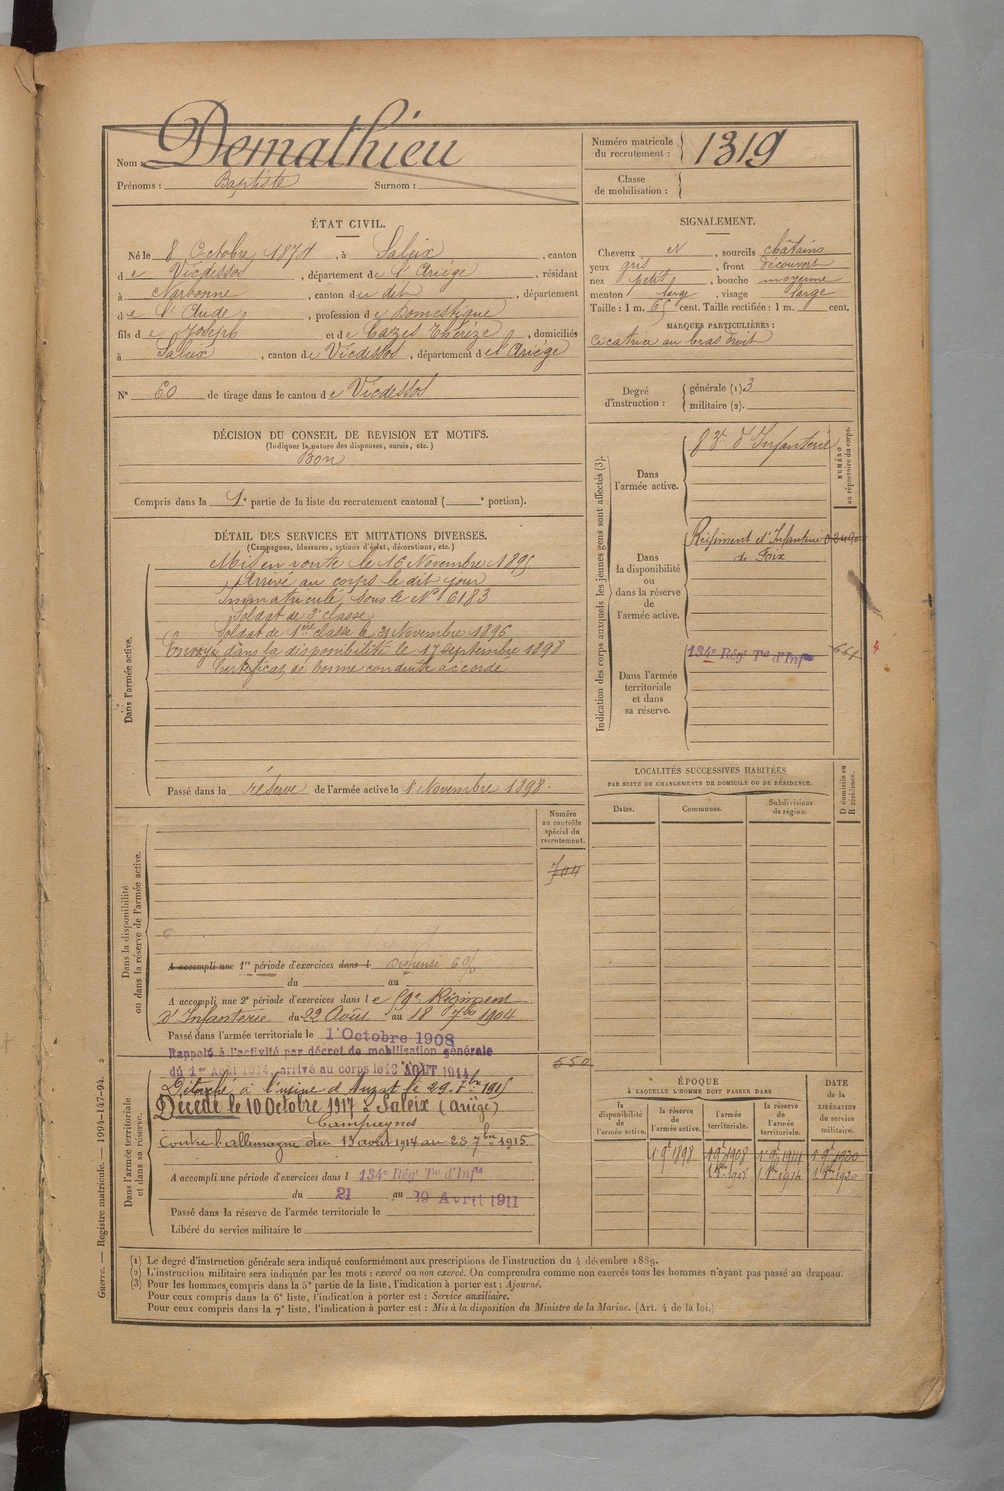 Nom : Demathieu
Prénoms : Baptiste Surnom :
Numéro matricule du recrutement : 1319
Classe de mobilisation :
ÉTAT CIVIL.
Né le 8 Octobre 1874, à Saleix, canton
de Vicdessos, département de l'Ariège, résidant
à Narbonne, canton du dit, département
de l'Aude, profession de Domestique
fils de Joseph et de Cazes Thérèze, domiciliés
à Saleix, canton de Vicdessos, département de l'Ariège
N° 60 de tirage dans le canton de Vicdessos
SIGNALEMENT.
Cheveux N, sourcils châtains
yeux gris, front découvert
nez petit, bouche moyenne
menton large, visage large
Taille : 1 m. 65 cent. Taille rectifiée : 1 m. cent.
MARQUES PARTICULIÈRES :
Cicatrice au bras droit
Degré d'instruction : générale (1). 3
militaire (2).
DÉCISION DU CONSEIL DE REVISION ET MOTIFS.
(Indiquer la nature des dispenses, sursis, etc.)
Bon
Compris dans la 1e partie de la liste du recrutement cantonal ( e portion).
DÉTAIL DES SERVICES ET MUTATIONS DIVERSES.
(Campagnes, blessures, actions d'éclat, décorations, etc.)
Dans l'armée active.
Mis en route le 16 Novembre 1895
Arrivé au corps le dit jour
Immatriculé sous le N° 6183
Soldat de 2e classe
Soldat de 1ère classe le 21 Novembre 1896
Envoyé dans la disponibilité le 17 septembre 1898
Certificat de bonne conduite accordé
Passé dans la réserve de l'armée active le 1 Novembre 1898.
Indication des corps auxquels les jeunes gens sont affectés (3).
NUMÉRO au répertoire du corps.
Dans l'armée active.
83e d'Infanterie
Dans la disponibilité ou dans la réserve de l'armée active.
Régiment d'Infanterie
de Foix
Dans l'armée territoriale et dans sa réserve.
134e Régt Tal d'Infie 664
LOCALITÉS SUCCESSIVES HABITÉES
PAR SUITE DE CHANGEMENTS DE DOMICILE OU DE RÉSIDENCE.
Dates. Communes. Subdivisions de région. D domicile ou R résidence.
Numéro au contrôle spécial du recrutement.
704
Dans la disponibilité ou dans la réserve de l'armée active.
A accompli une 1re période d'exercices dans l Dispensé
du au
A accompli une 2e période d'exercices dans le 59e Régiment
d'Infanterie du 22 Août au 18 7bre 1904
Passé dans l'armée territoriale le 1 Octobre 1908
Dans l'armée territoriale et dans sa réserve.
550
Rappelé à l'activité par décret de mobilisation générale
du 1er Août 1914, arrivé au corps le 13 AOUT 1914
Détaché à l'usine d'Auzat le 29 7bre 1915
Décédé le 10 Octobre 1917 à Saleix (Ariège)
Campagnes
Contre l'allemagne du 13 août 1914 au 28 7bre 1915
A accompli une période d'exercices dans l 134e Régt Tal d'Infie
du 21 au 29 Avril 1911
Passé dans la réserve de l'armée territoriale le
Libéré du service militaire le
ÉPOQUE
À LAQUELLE L'HOMME DOIT PASSER DANS
la disponibilité de l'armée active. la réserve de l'armée active. l'armée territoriale. la réserve de l'armée territoriale.
DATE de la LIBÉRATION du service militaire.
1 9bre 1898 1 9bre 1908 1 9bre 1914 1 9bre 1920
1 8bre 1908 1 8bre 1914 1 8bre 1920
Guerre. — Registre matricule. — 1994-147-94. 2
(1) Le degré d'instruction générale sera indiqué conformément aux prescriptions de l'instruction du 4 décembre 1889.
(2) L'instruction militaire sera indiquée par les mots : exercé ou non exercé. On comprendra comme non exercés tous les hommes n'ayant pas passé au drapeau.
(3) Pour les hommes compris dans la 5e partie de la liste, l'indication à porter est : Ajourné.
Pour ceux compris dans la 6e liste, l'indication à porter est : Service auxiliaire.
Pour ceux compris dans la 7e liste, l'indication à porter est : Mis à la disposition du Ministre de la Marine. (Art. 4 de la loi.)